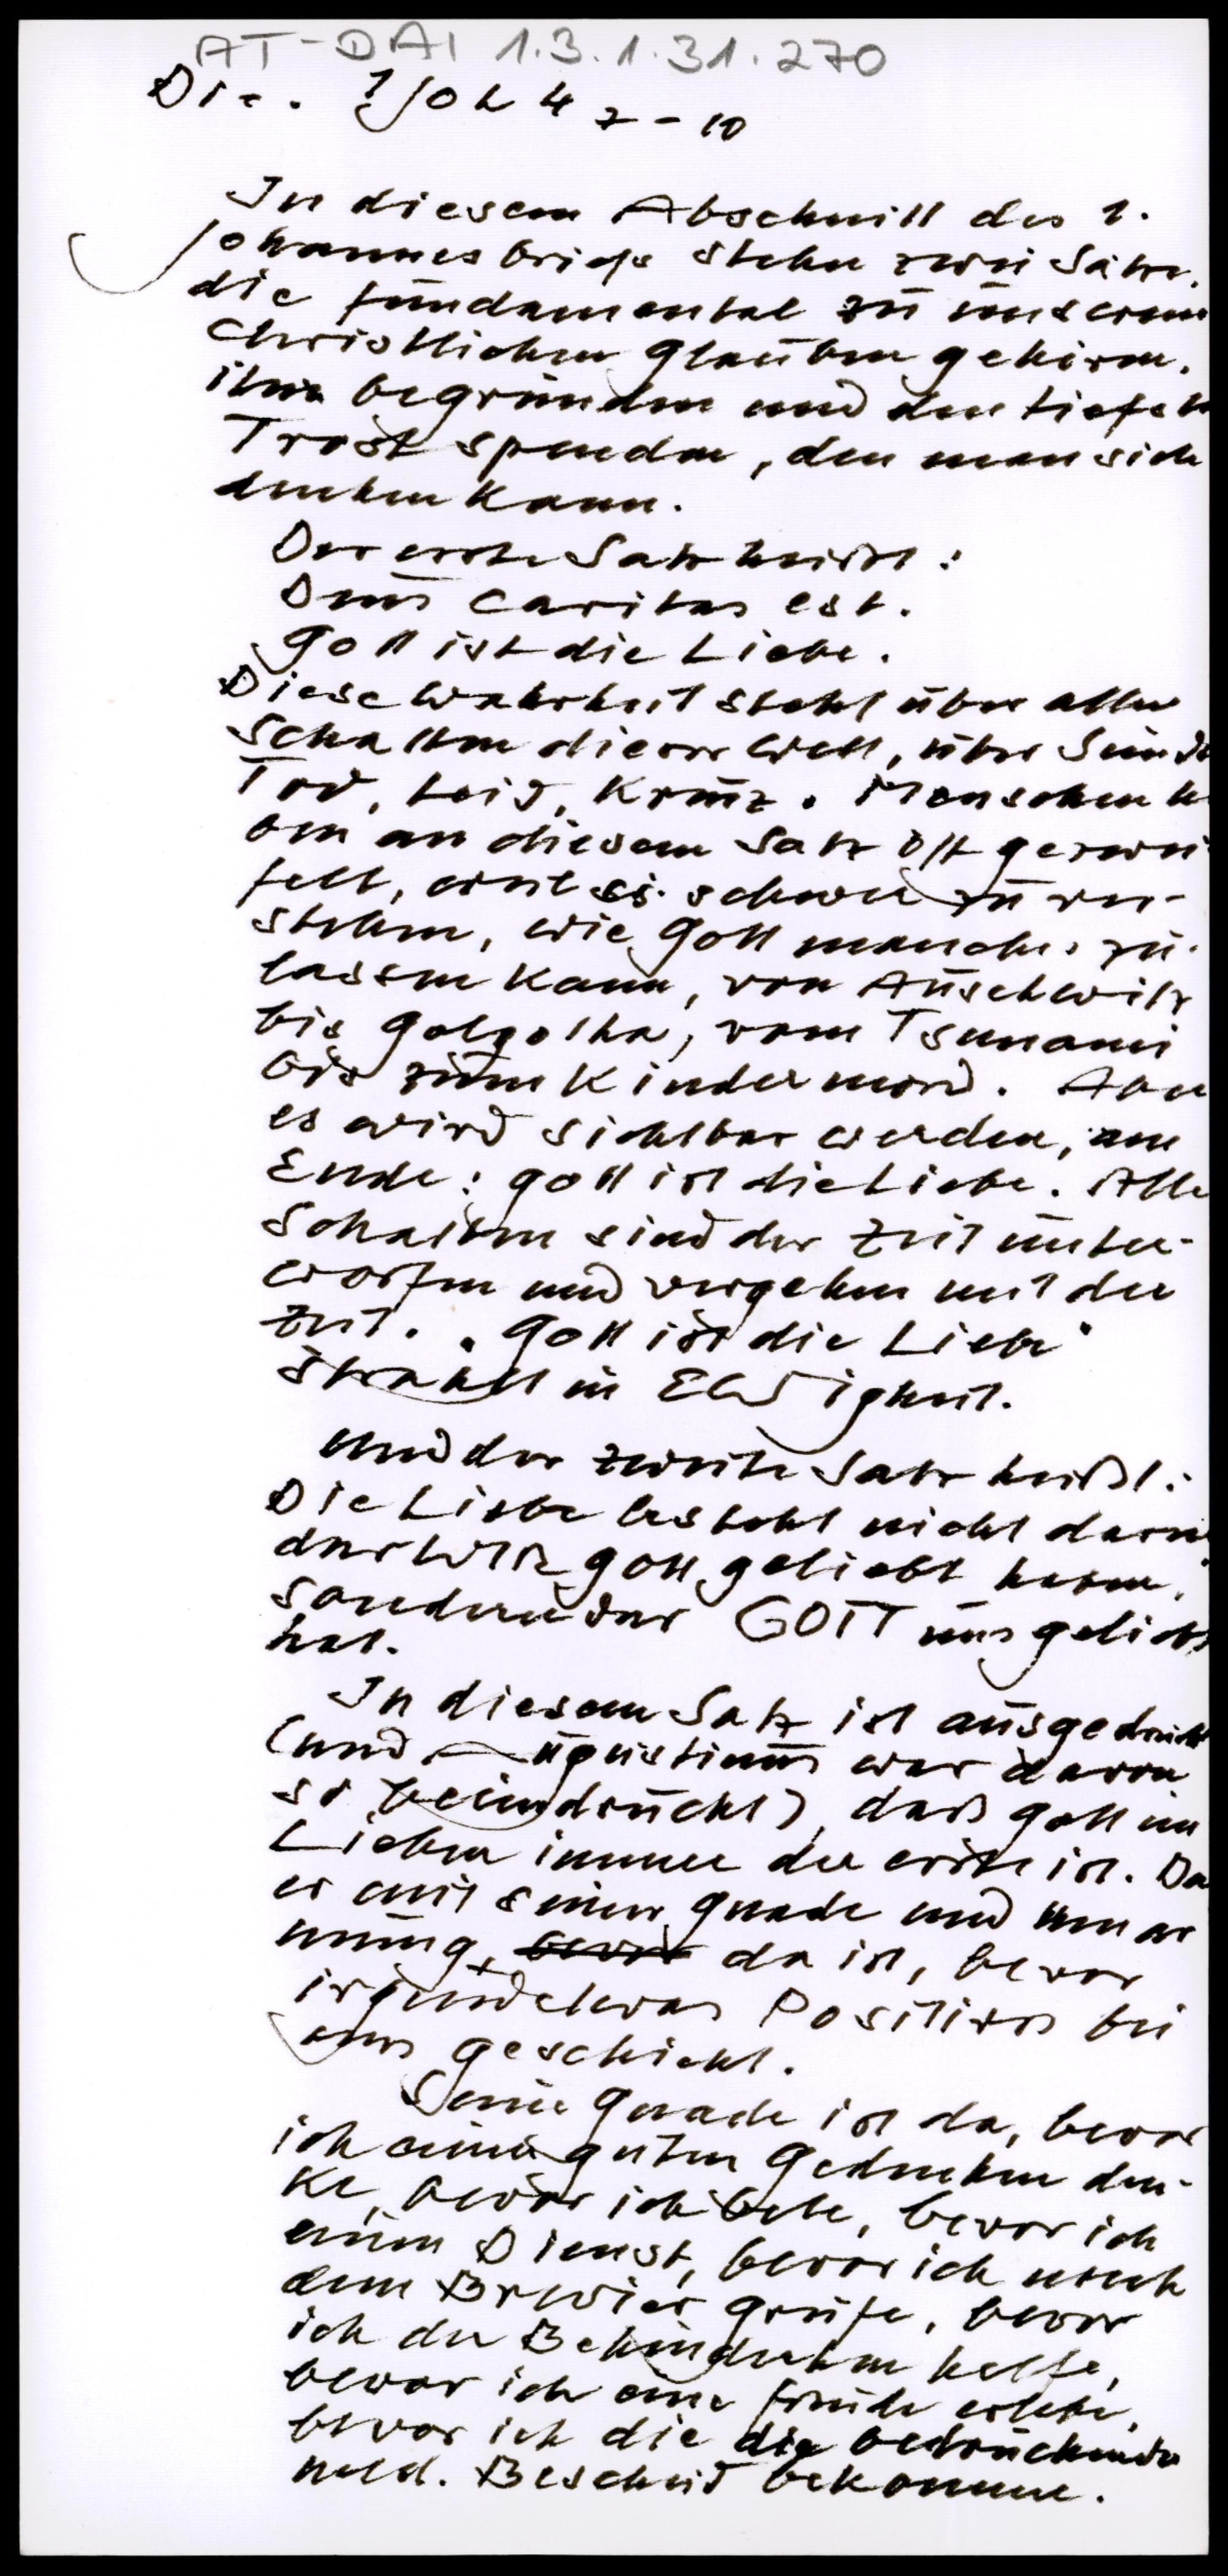 AT-DAI 1.3.1.31.270
Die. 1 Joh 4 7-10
In diesem Abschnitt des 1.
Johannesbriefs stehn zwei Sätze,
die fundamental zu unserem
Christlichen Glauben gehören,
ihn begründen und den tiefsten
Trost spenden, den man sich
denken kann.
Der erste Satz heißt:
Deus caritas est.
Gott ist die Liebe.
Diese Wahrheit steht über allen
Schatten dieser Welt, über Sünde
Tod, Leid, Kreuz. Menschen h
ben an diesem Satz oft gezwei
felt, weil es schwer zu ver-
stehen, wie Gott manches zu-
lassen kann, von Auschwitz
bis Golgotha, vom Tsunami
bis zum Kindermord. Aber
es wird sichtbar werden, am
Ende: Gott ist die Liebe. Alle
Schatten sind der Zeit unter-
worfen und vergehen mit der
Zeit. "Gott ist die Liebe"
strahlt in EWigkeit.
Und der zweite Satz heißt:
Die Liebe besteht nicht darin
das WIR Gott geliebt haben,
sondern das GOTT uns geliebt
hat.
In diesem Satz ist ausgedrückt
(und Augustinus war davon
so beeindruckt), daß Gott im
Lieben immer der erste ist. Da
er mit seiner Gnade und Umar
mung bevor da ist, bevor
irgendetwas Positives bei
uns geschieht.
Seine Gnade ist da, bevor
ich einen guten Gedanken den-
ke, bevor ich bete, bevor ich
einen Dienst, bevor ich nach
dem Brevier greife, bevor
ich den Behinderten helfe,
bevor ich eine Freude erlebe,
bevor ich die die bedrückenden
Bescheid bekomme.